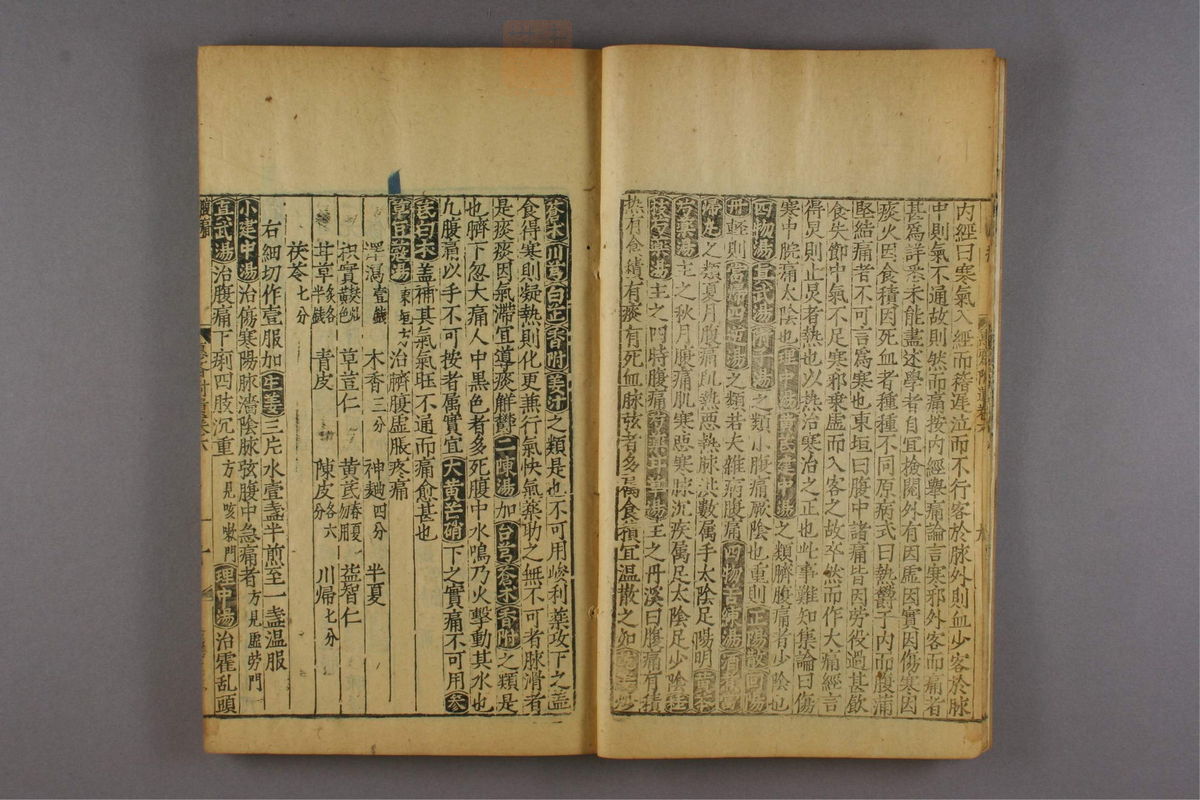 内經曰寒氣入經而稽遲泣而不行客於脉外則血少客於脉
中則氣不通故則然而痛按内經舉痛論言寒邪外客而痛者
甚爲詳悉未能盡述學者自宜檢閱外有因虚因實因傷寒因
痰火因食積因死血者種種不同原病式曰熱欝于内而腹滿
堅結痛者不可言爲寒也東垣曰腹中諸痛皆因劳役過甚飲
食失節中氣不足寒邪乗虚而入客之故卒然而作大痛經言
得炅則止炅者熱也以熱治寒治之正也此事難知集論曰傷
寒中脘痛太陰也理中湯黄芪建中湯之類臍腹痛者少陰也
四物湯真武湯附子湯之類小腹痛厥陰也重則正陽散回陽
丹輕則當歸四逆湯之類若夫雜病腹痛四物苦練湯
之類夏月腹痛肌熱惡熱脉洪數属手太陰足陽明黄芩
芍藥湯主之秋月腹痛肌寒惡寒脉沉疾属足太陰足少陰桂
枝芍藥湯主之四時腹痛芍藥甘草湯主之丹溪曰腹痛有積
热有食積有痰有死血脉弦者多属食積宜温散之如
蒼术川芎白芷香附姜汁之類是也不可用峻利藥攻下之盖
食得寒則凝熱則化更兼行氣快氣藥助之無不可者脉滑者
是痰痰因氣滯宜導痰觧欝二陳湯加台芎蒼术香附之類是
也臍下忽大痛人中黒色者多死腹中水鳴乃火擊動其水也
凢腹痛以手不可按者属實宜大黄芒硝下之實痛不可用参
芪白术盖補其氣氣旺不通而痛愈甚也
草豆蔻湯東垣方治臍腹虚脹疼痛
澤瀉壹錢 木香三分 神麯四分 半夏
枳實麩炒黄色 草荳仁 黄芪春夏勿用 益智仁
甘草炙各半錢 青皮 陳皮各六分 川歸七分
茯苓七分
右細切作壹服加生姜三片水壹盞半煎至一盞温服
小建中湯治傷寒陽脉濇陰脉弦腹中急痛者方見虚劳門
真武湯治腹痛下痢四肢沉重方見咳嗽門理中湯治霍乱頭